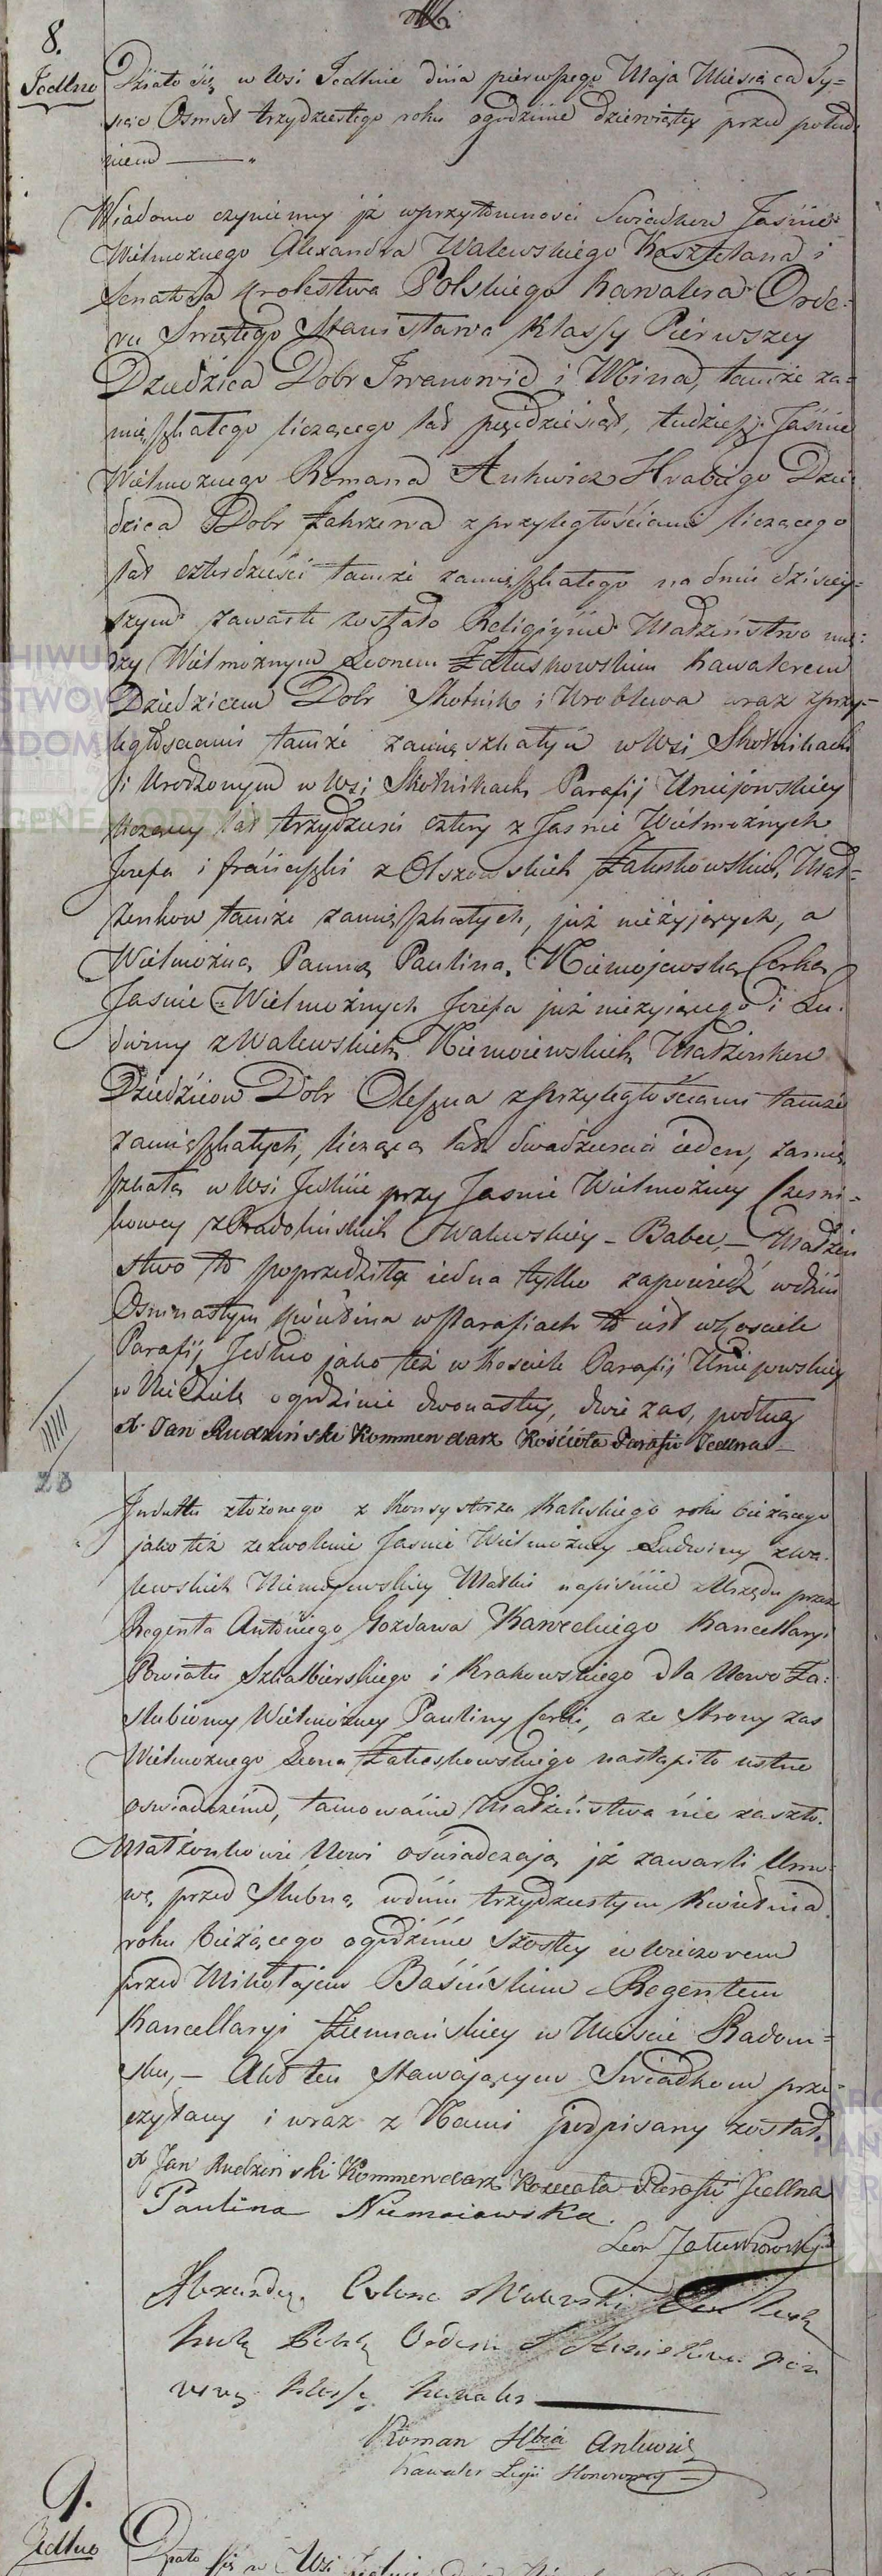 8.
Jedlno
Działo się w Wsi Jedlnie dnia pierwszego Maja Miesiąca Ty=
siąc Osmset trzydziestego roku o godzinie dziewiątey przed połud
niem
Wiadomo czyniemy iż w przytomności Swiadkow Jaśnie
Wielmoznego Alexandra Walewskiego Kasztelana i
Senatora Krolestwa Polskiego Kawalera Orde=
ru Swiętego Stanisława Klassy Pierwszey
Dziedzica Dobr Iwanowic i tamże za=
mięszkałego liczącego lat pięćdziesiąt, tudziesz Jaśnie
Wielmoznego Romana Ankwicz Hrabiego Dzie
dzica Dobr z przyległościami liczącego
lat czterdzieści tamże zamięszkałego na dniu dzisiey=
szym zawarte zostało Religiyne Małżeństwo mię=
dzy Wielmożnym Leonem Załuskowskim Kawalerem
Dziedzicem Dobr Skotnik i Wroblewa wraz z przy=
ległościami tamże zamięszkałym w Wsi Skotnikach
i Urodzonym w Wsi Skotnikach Parafij Uniejowskiey
liczący lat trzydzieści cztery z Jasnie Wielmożnych
Jozefa i Franciszki z Olszowskich Załuskowskich Mał=
żonkow tamże zamięszkałych, już nieżyjących, a
Wielmożną Panną Pauliną Niemojewską Corką
Jasnie Wielmożnych Jozefa już nieżyiącego i Lu=
dwiny z Walewskich Niemoiewskich Małżonkow
Dziedzicow Dobr Oleszna z przyległościami tamże
zamięszkałych, licząca lat dwadzieścia ieden, zamię
szkałą w Wsi Jedlnie przy Jasnie Wielmożney Czesni=
kowey z Walewskiey – Babce, – Małżeń
stwo to poprzedziła iedna tylko zapowiedź w dniu
Osmnastym Kwietnia w Parafiach to iest w Kosciele
Parafij Jedlno jako też w Kosciele Parafij Uniejowskiey
w Niedzielę o godzinie dwonastey, dwie zas, podług
X. Jan Rudziński Kommendarz Kościoła Parafii Jedlna
28
Indultu złożonego z Konsystorza Kaliskiego roku bieżącego
jako też zezwolenie Jasnie Wielmożney Ludwiny z Wa=
lewskich Niemojewskiey Matki na piśmie z Urzędu przez
Regenta Antoniego Gozdawa Kancellaryi
Powiatu Szkalbierskiego i Krakowskiego dla Nowo Za=
slubioney Wielmożney Pauliny Corki, a ze Strony zas
Wielmoznego Leona Załuskowskiego nastąpiło ustne
oswiadczenie, tamowanie Małżeństwa nie zaszło.
Małżonkowie Nowi oświadczają iż zawarli Umo=
wę przed Slubną w dniu trzydziestym Kwietnia
roku bieżącego o godzinie Szostey w wieczorem
przed Mikołajem Basińskim Regentem
Kancellaryi Ziemiańskiey w Mieście Radom=
sku, – Akt ten Stawającym Swiadkom prze=
czytany i wraz z Nami podpisany został.
X Jan Rudzinski Kommendarz Koscioła Parafii Jedlna
Paulina Niemoiewska.
Leon Załuskowski
Alexander Colona Walewski
Orderu S Stanisława pier
wszy Klassy Kawaler
Roman Hbia Ankwicz
Kawaler Legii Honorowey
9.
Jedlno
Działo się w Wsi Jedlnie